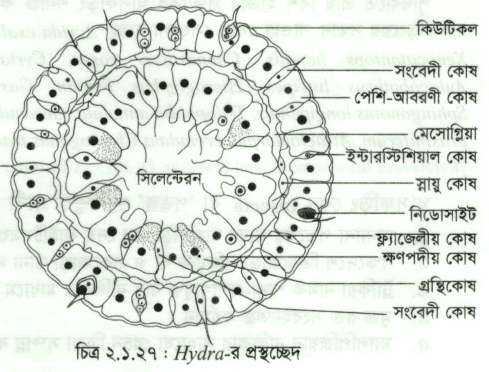 কিউটিকল
সংবেদী কোষ
পেশি-আবরণী কোষ
মেসোগ্লিয়া
ইন্টারস্টিশিয়াল কোষ
সিলেন্টেরন
স্নায়ু কোষ
নিডোসাইট
ফ্ল্যাজেলীয় কোষ
ক্ষণপদীয় কোষ
গ্রন্থিকোষ
সংবেদী কোষ
চিত্র ২.১.২৭ : Hydra-র প্রস্থচ্ছেদ